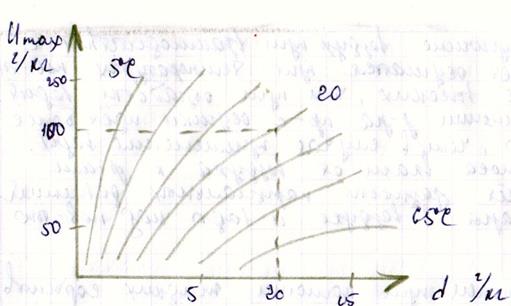 Umax
г/кг
5°C
250
20
100
50
65°C
5
20
15
d г/кг